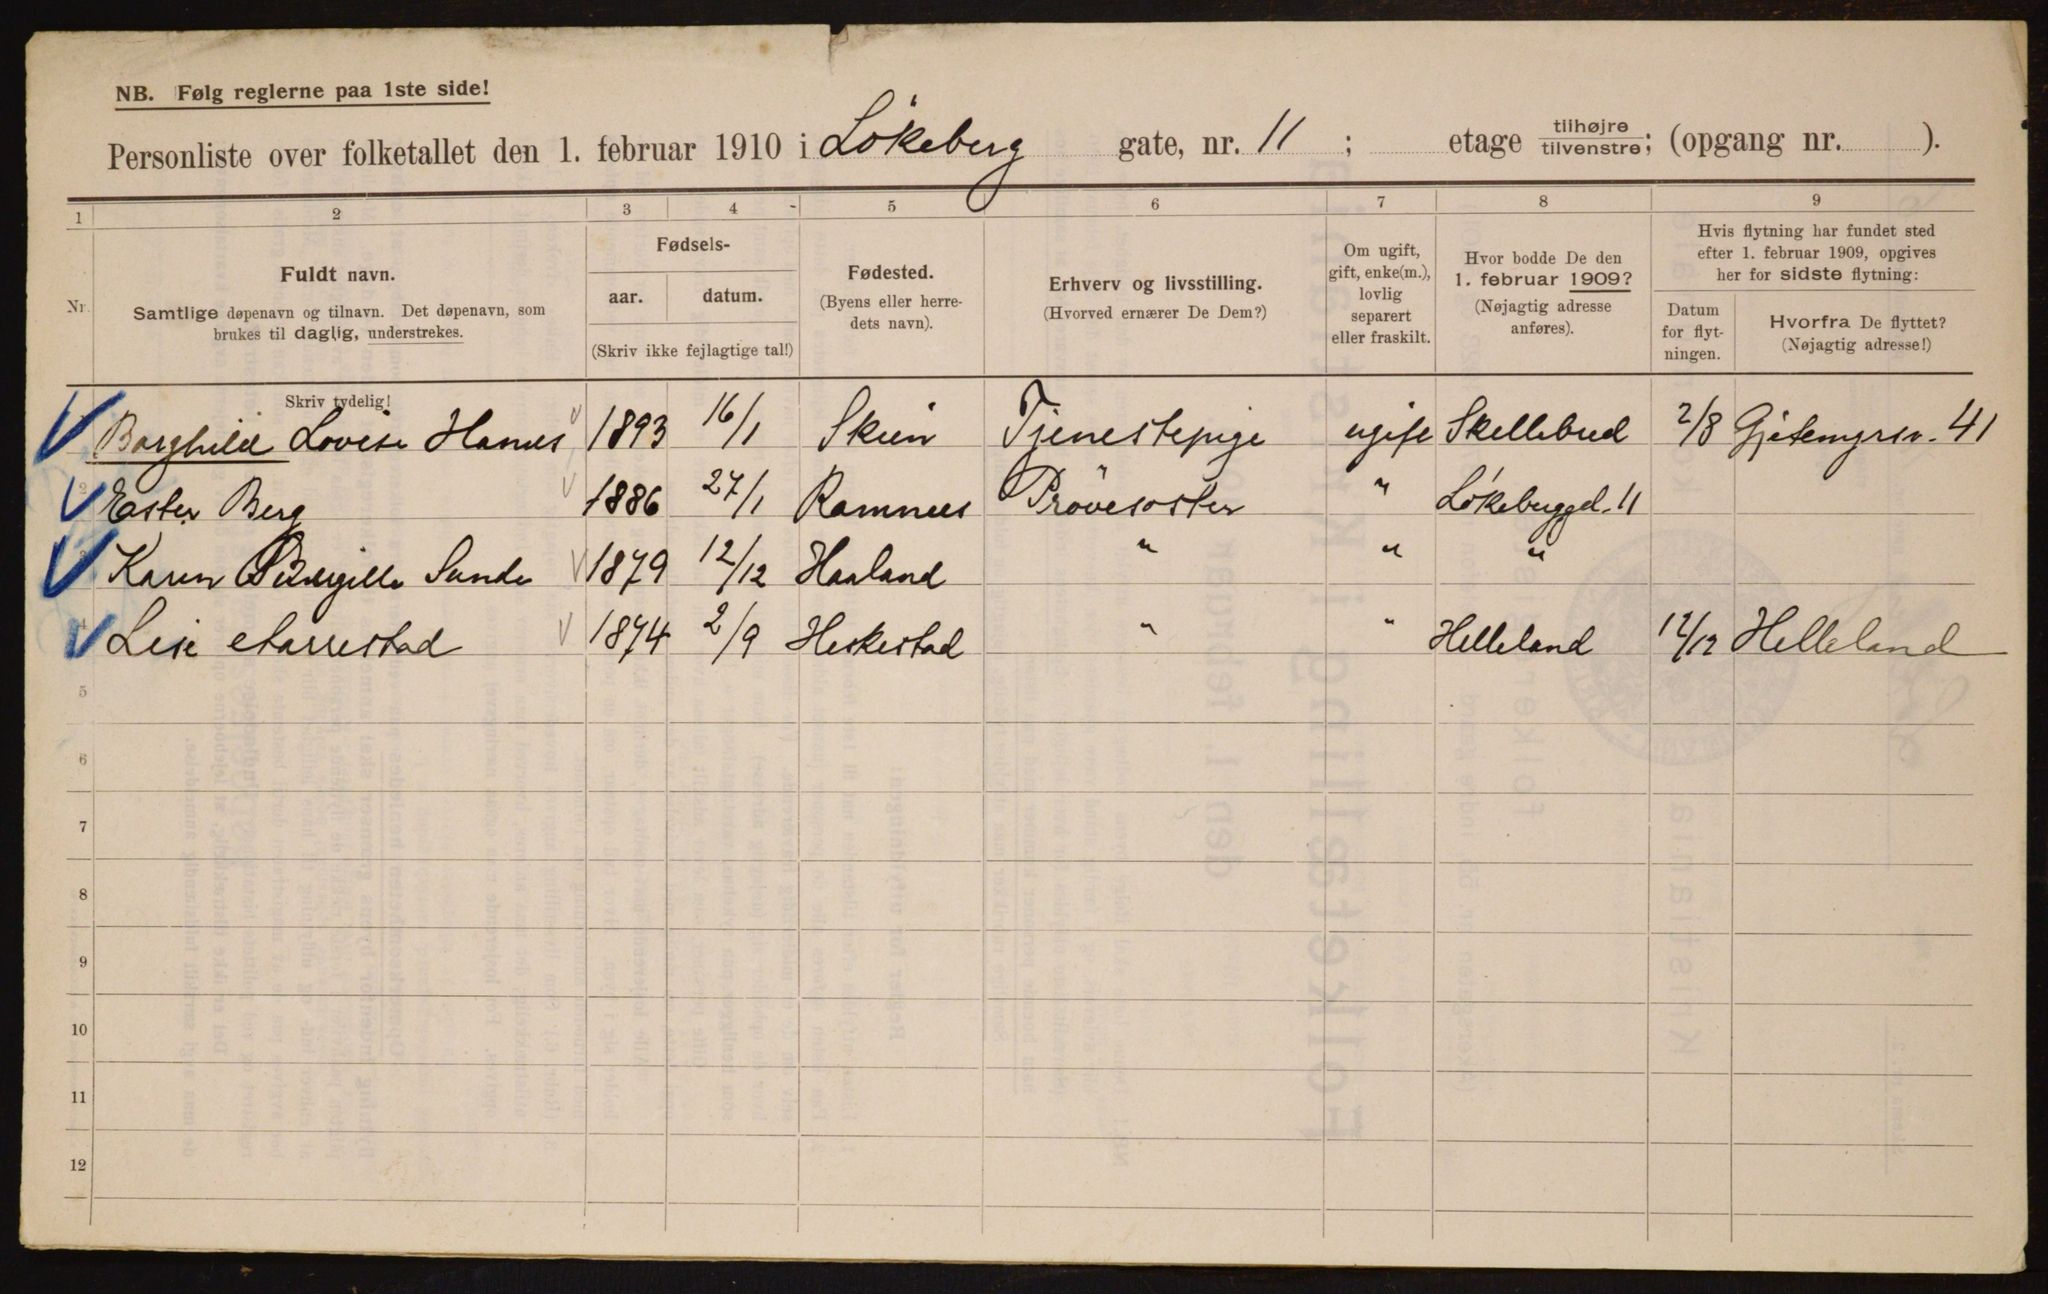 NB. Følg reglerne paa 1ste side!
Personliste over folketallet den 1. februar 1910 i Løkeberg gate, nr. 11 ; etage tilhøjre tilvenstre; (opgang nr. ).
1 2 3 4 5 6 7 8 9
Nr.
Fuldt navn.
Samtlige døpenavn og tilnavn. Det døpenavn, som
brukes til daglig, understrekes.
Skriv tydelig!
Fødsels-
aar. datum.
(Skriv ikke fejlagtige tal!)
Fødested.
(Byens eller herre-
dets navn).
Erhverv og livsstilling.
(Hvorved ernærer De Dem?)
Om ugift,
gift, enke(m.),
lovlig
separert
eller fraskilt.
Hvor bodde De den
1. februar 1909?
(Nøjagtig adresse
anføres).
Hvis flytning har fundet sted
efter 1. februar 1909, opgives
her for sidste flytning:
Datum
for flyt-
ningen.
Hvorfra De flyttet?
(Nøjagtig adresse!)
Borghild Lovise 1893 16/1 Skien Tjenestepige ugift Skellebed 2/8 Gjetemyrsv. 41
2 Ester Berg 1886 27/1 Ramnes Prøvesøster " Løkebergd. 11
3 Karen Sunde 1879 12/12 Haaland " " "
4 Lise Aarrestad 1874 2/9 Heskestad " " Helleland 12/12 Helleland
5
6
7
8
9
10
11
12